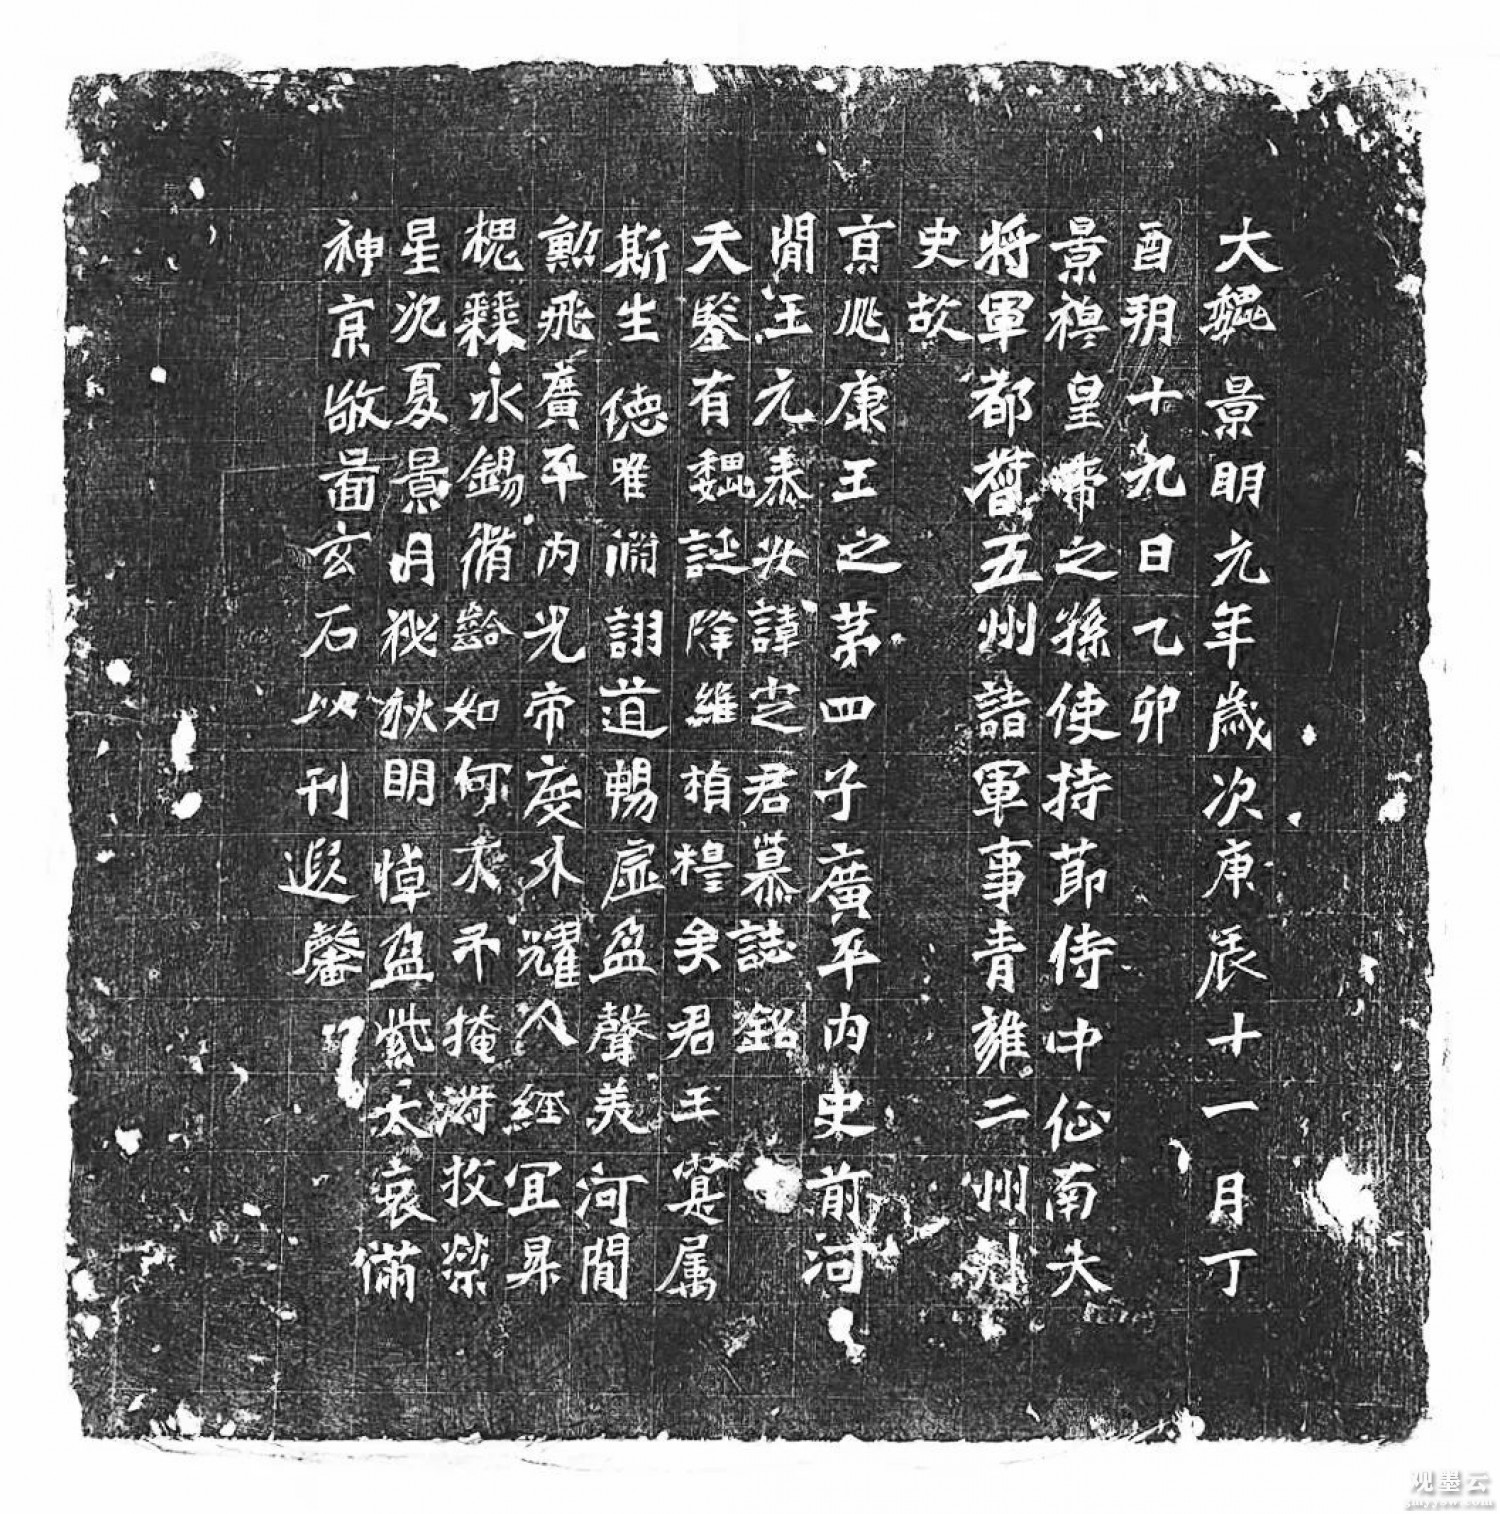 大魏景明元年歲次庚辰十一月丁
酉朔十九日乙卯
景穆皇帝之孫使持節侍中征南大
將軍都督五州諸軍事青雍二州刺
史故
京兆康王之第四子廣平內史前河
間王元泰安諱定君墓誌銘
天鑒有魏誕降維楨穆矣君王寔属
斯生德唯淵詡道暢虛盈聲美河間
勲飛廣平內光帝度外耀人經宜昇
槐棘永錫脩齡如何不弔掩收榮
星沉夏景月秘秋明悼盈紫天哀滿
神京敬啚玄石以刊遐馨
观墨云
gmyyow.com